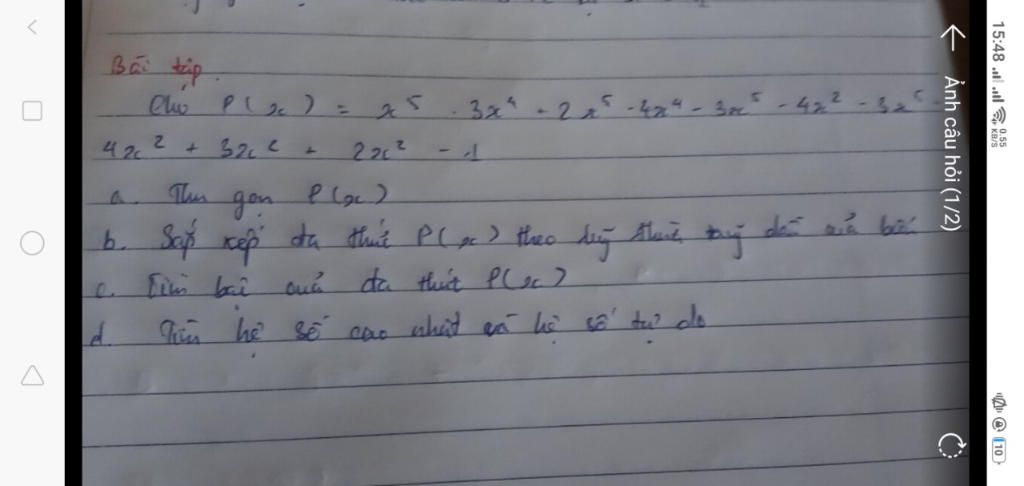 Bài tập.
Cho P(x) = x⁵ - 3x⁴ - 2x⁵ - 4x⁴ - 3x⁵ - 4x² - 3x⁵ -
4x² + 3x² + 2x² - 1
a. Thu gọn P(x)
b. Sắp xếp đa thức P(x) theo lũy thừa dần của biến
c. Tìm bậc của đa thức P(x)
d. Tìm hệ số cao nhất và hệ số tự do
Ảnh câu hỏi (1/2)
15:48
0.55
KB/S
10